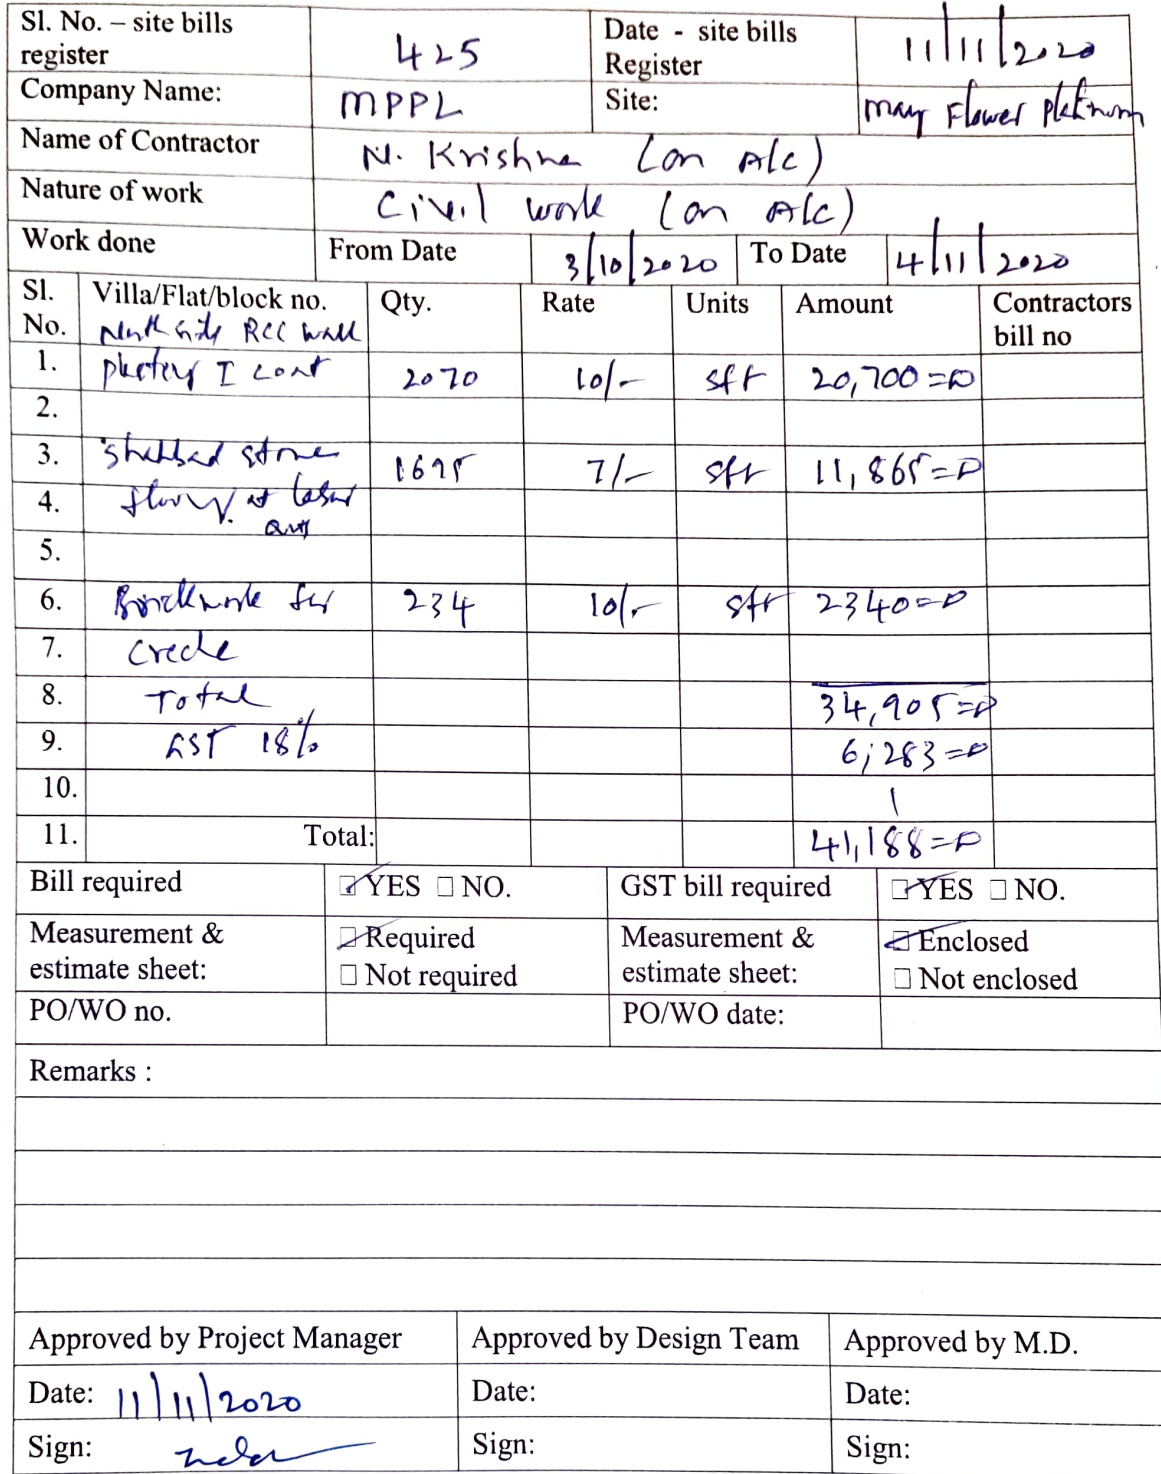 Sl. No. – site bills register 425 Date - site bills Register 11/11/2020
Company Name: MPPL Site: May Flower Platinum
Name of Contractor N. Krishna (on A/c)
Nature of work Civil work (on A/c)
Work done From Date 3/10/2020 To Date 4/11/2020
Sl. No. Villa/Flat/block no. Qty. Rate Units Amount Contractors bill no
North side RCC wall
1. I coat 2070 10/- sft 20,700=0
2.
3. stone 1695 7/- sft 11,865=0
4. at
5.
6. Brickwork for 234 10/- sft 2340=0
7. Creche
8. Total 34,905=0
9. GST 18% 6,283=0
10.
11. Total: 41,188=0
Bill required YES NO. GST bill required YES NO.
Measurement & estimate sheet: Required Not required Measurement & estimate sheet: Enclosed Not enclosed
PO/WO no. PO/WO date:
Remarks :
Approved by Project Manager Approved by Design Team Approved by M.D.
Date: 11/11/2020 Date: Date:
Sign: Sign: Sign: